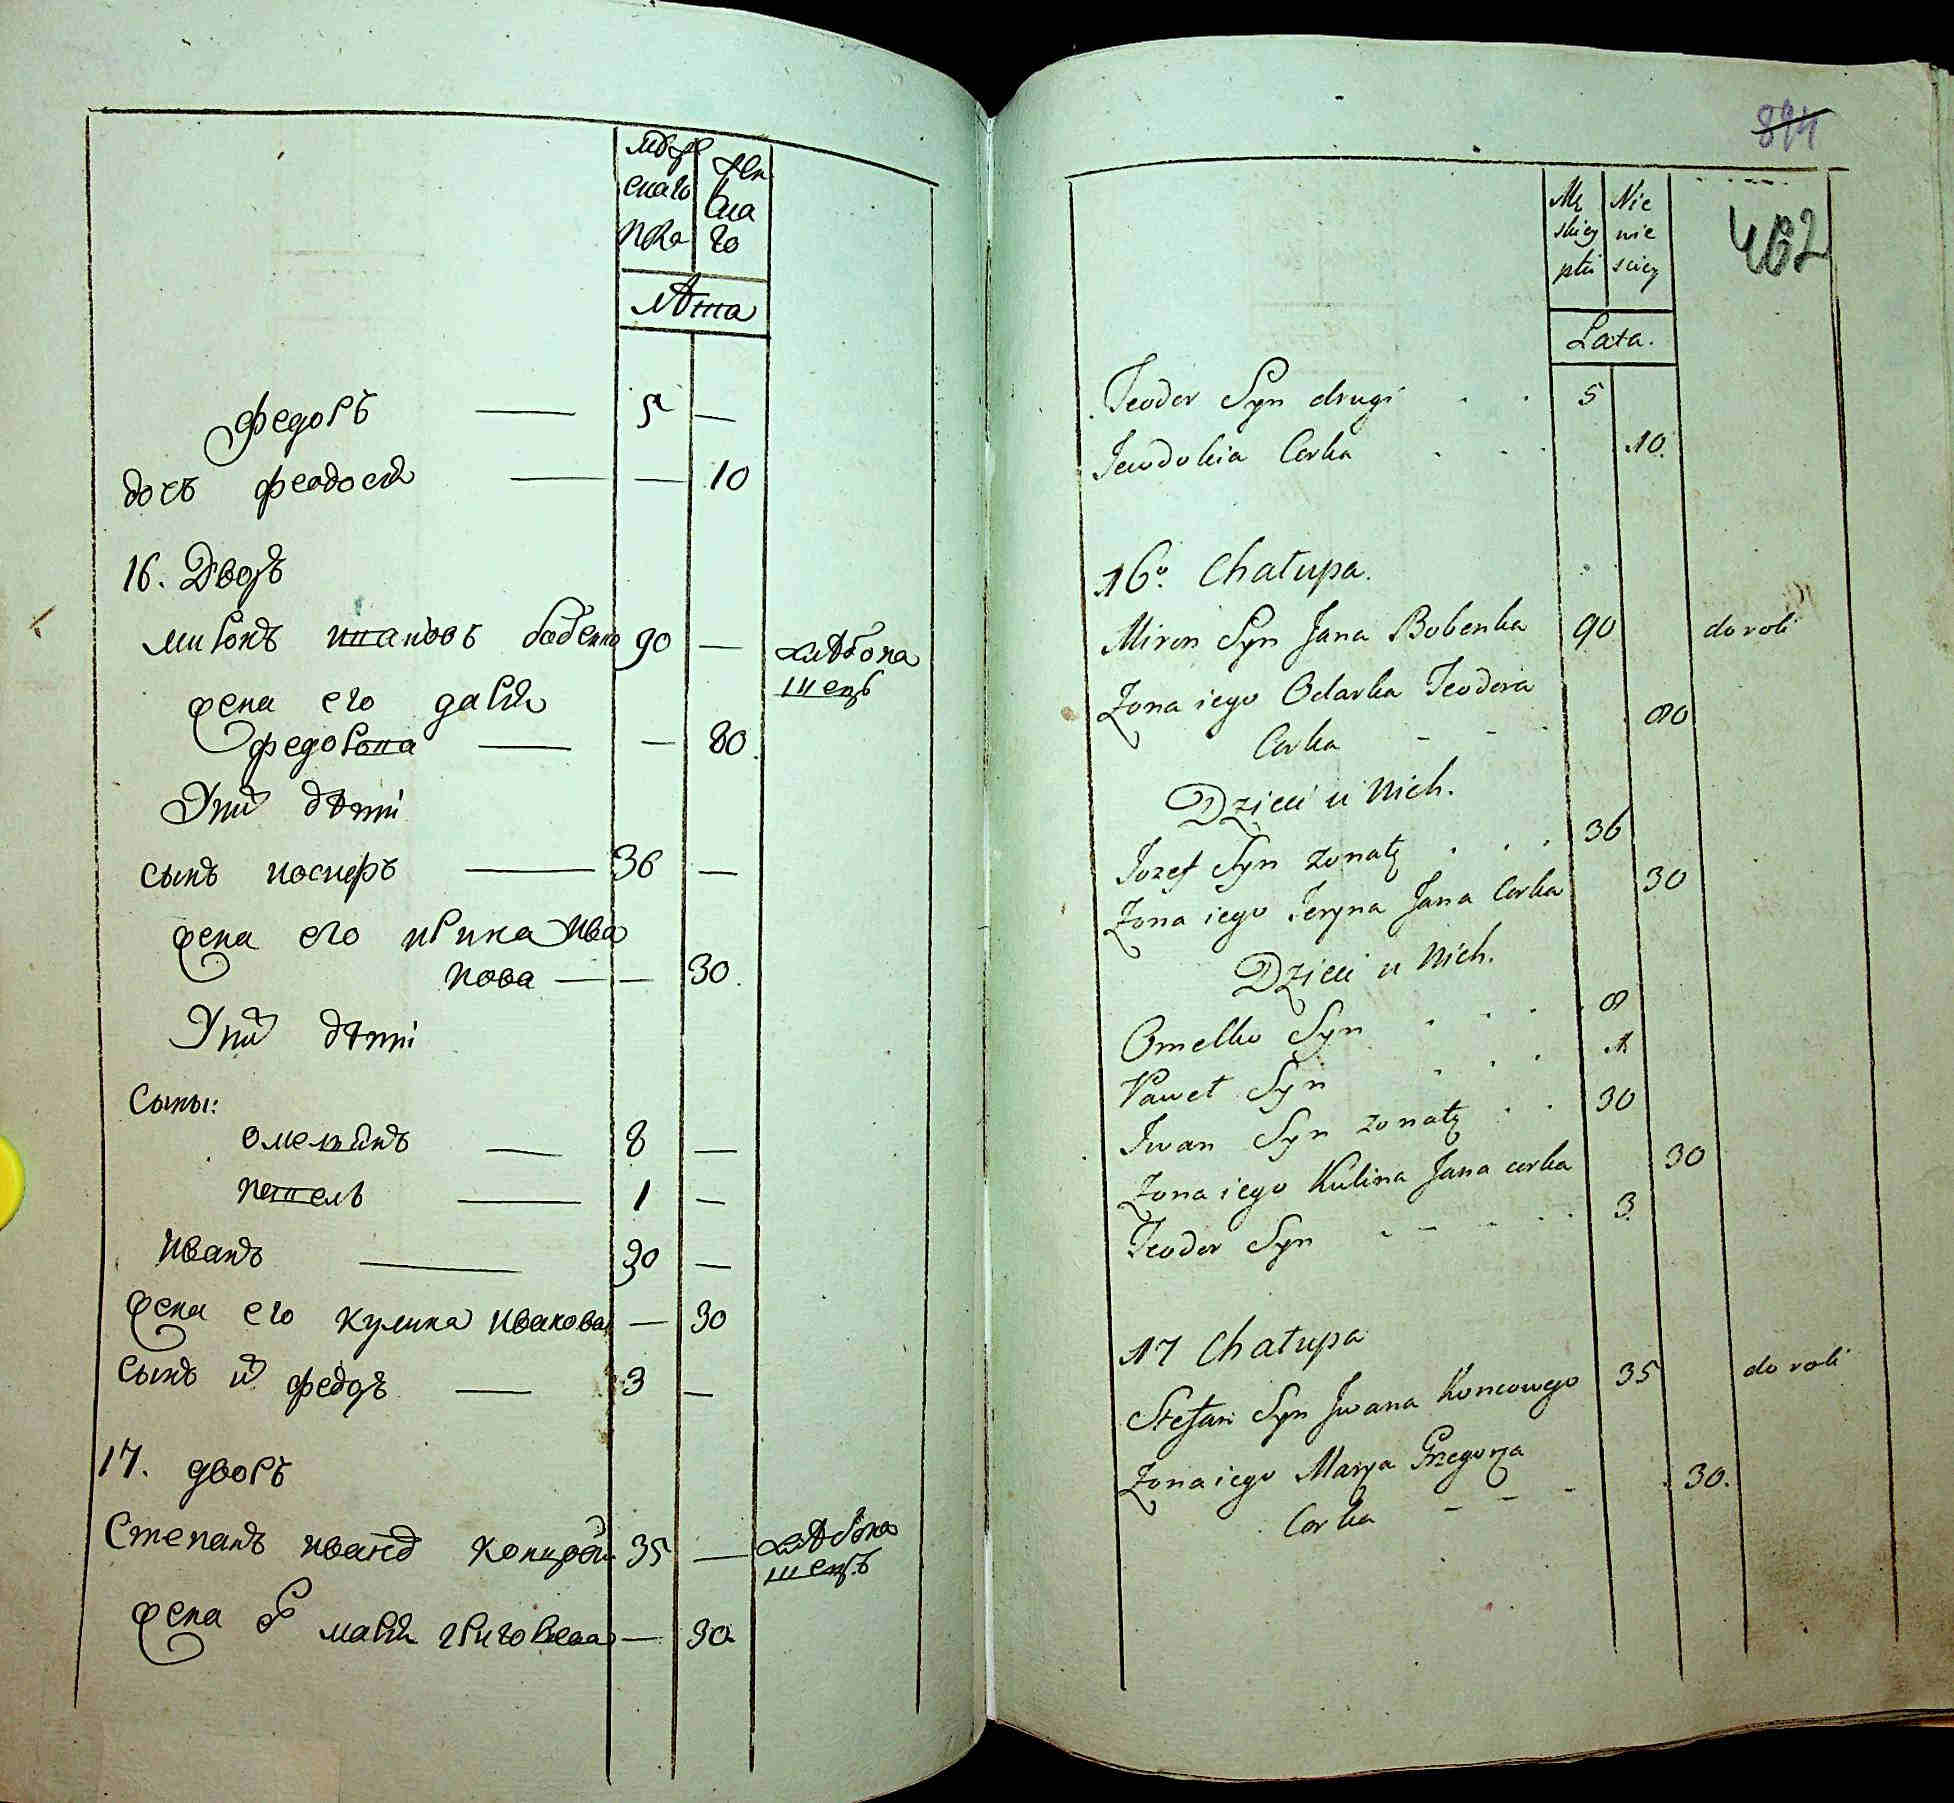 мужескаго пола
женскаго
лѣта
Федоръ — 5 —
дочь феодосия — — 10
16. Дворъ
миронъ ивановъ бобенко 90 — хлѣбопа
жена его дария
шецъ
федорова — — 80
У них дѣти
сынъ иосифъ — 36 —
жена его ирина ива
нова — — 30.
У них дѣти
сыны:
омелиянъ — 8 —
павелъ — 1 —
иванъ — 30 —
жена его кулина иванова — 30
сынъ их федоръ — 3 —
17. дворъ
Степанъ иванов концовой 35 — хлѣбопа
шецъ
жена ег мария григорьева — 30
894
402
Męskiey płci
Nie wie sciey
Lata.
Teodor Syn drugi . . 5
Jewdokia Corka . . . 10.
16o. Chałupa.
Miron Syn Jana Bobenka 90 do roli
Zona iego Odarka Teodora
Corka - - - 80
Dzieci u Nich.
Jozef Syn zonaty . . . 36
Zona iego Jeryna Jana Corka 30
Dzieci u Nich.
Omelko Syn . . . . 8
Paweł Syn . . . 1
Iwan Syn zonaty . . 30
Zona iego Kulina Jana corka 30
Teodor Syn . - - . . 3.
17 Chałupa
Stefan Syn Iwana Koncowego 35 do roli
Zona iego Marya Grzegorza
Corka - - - . 30.